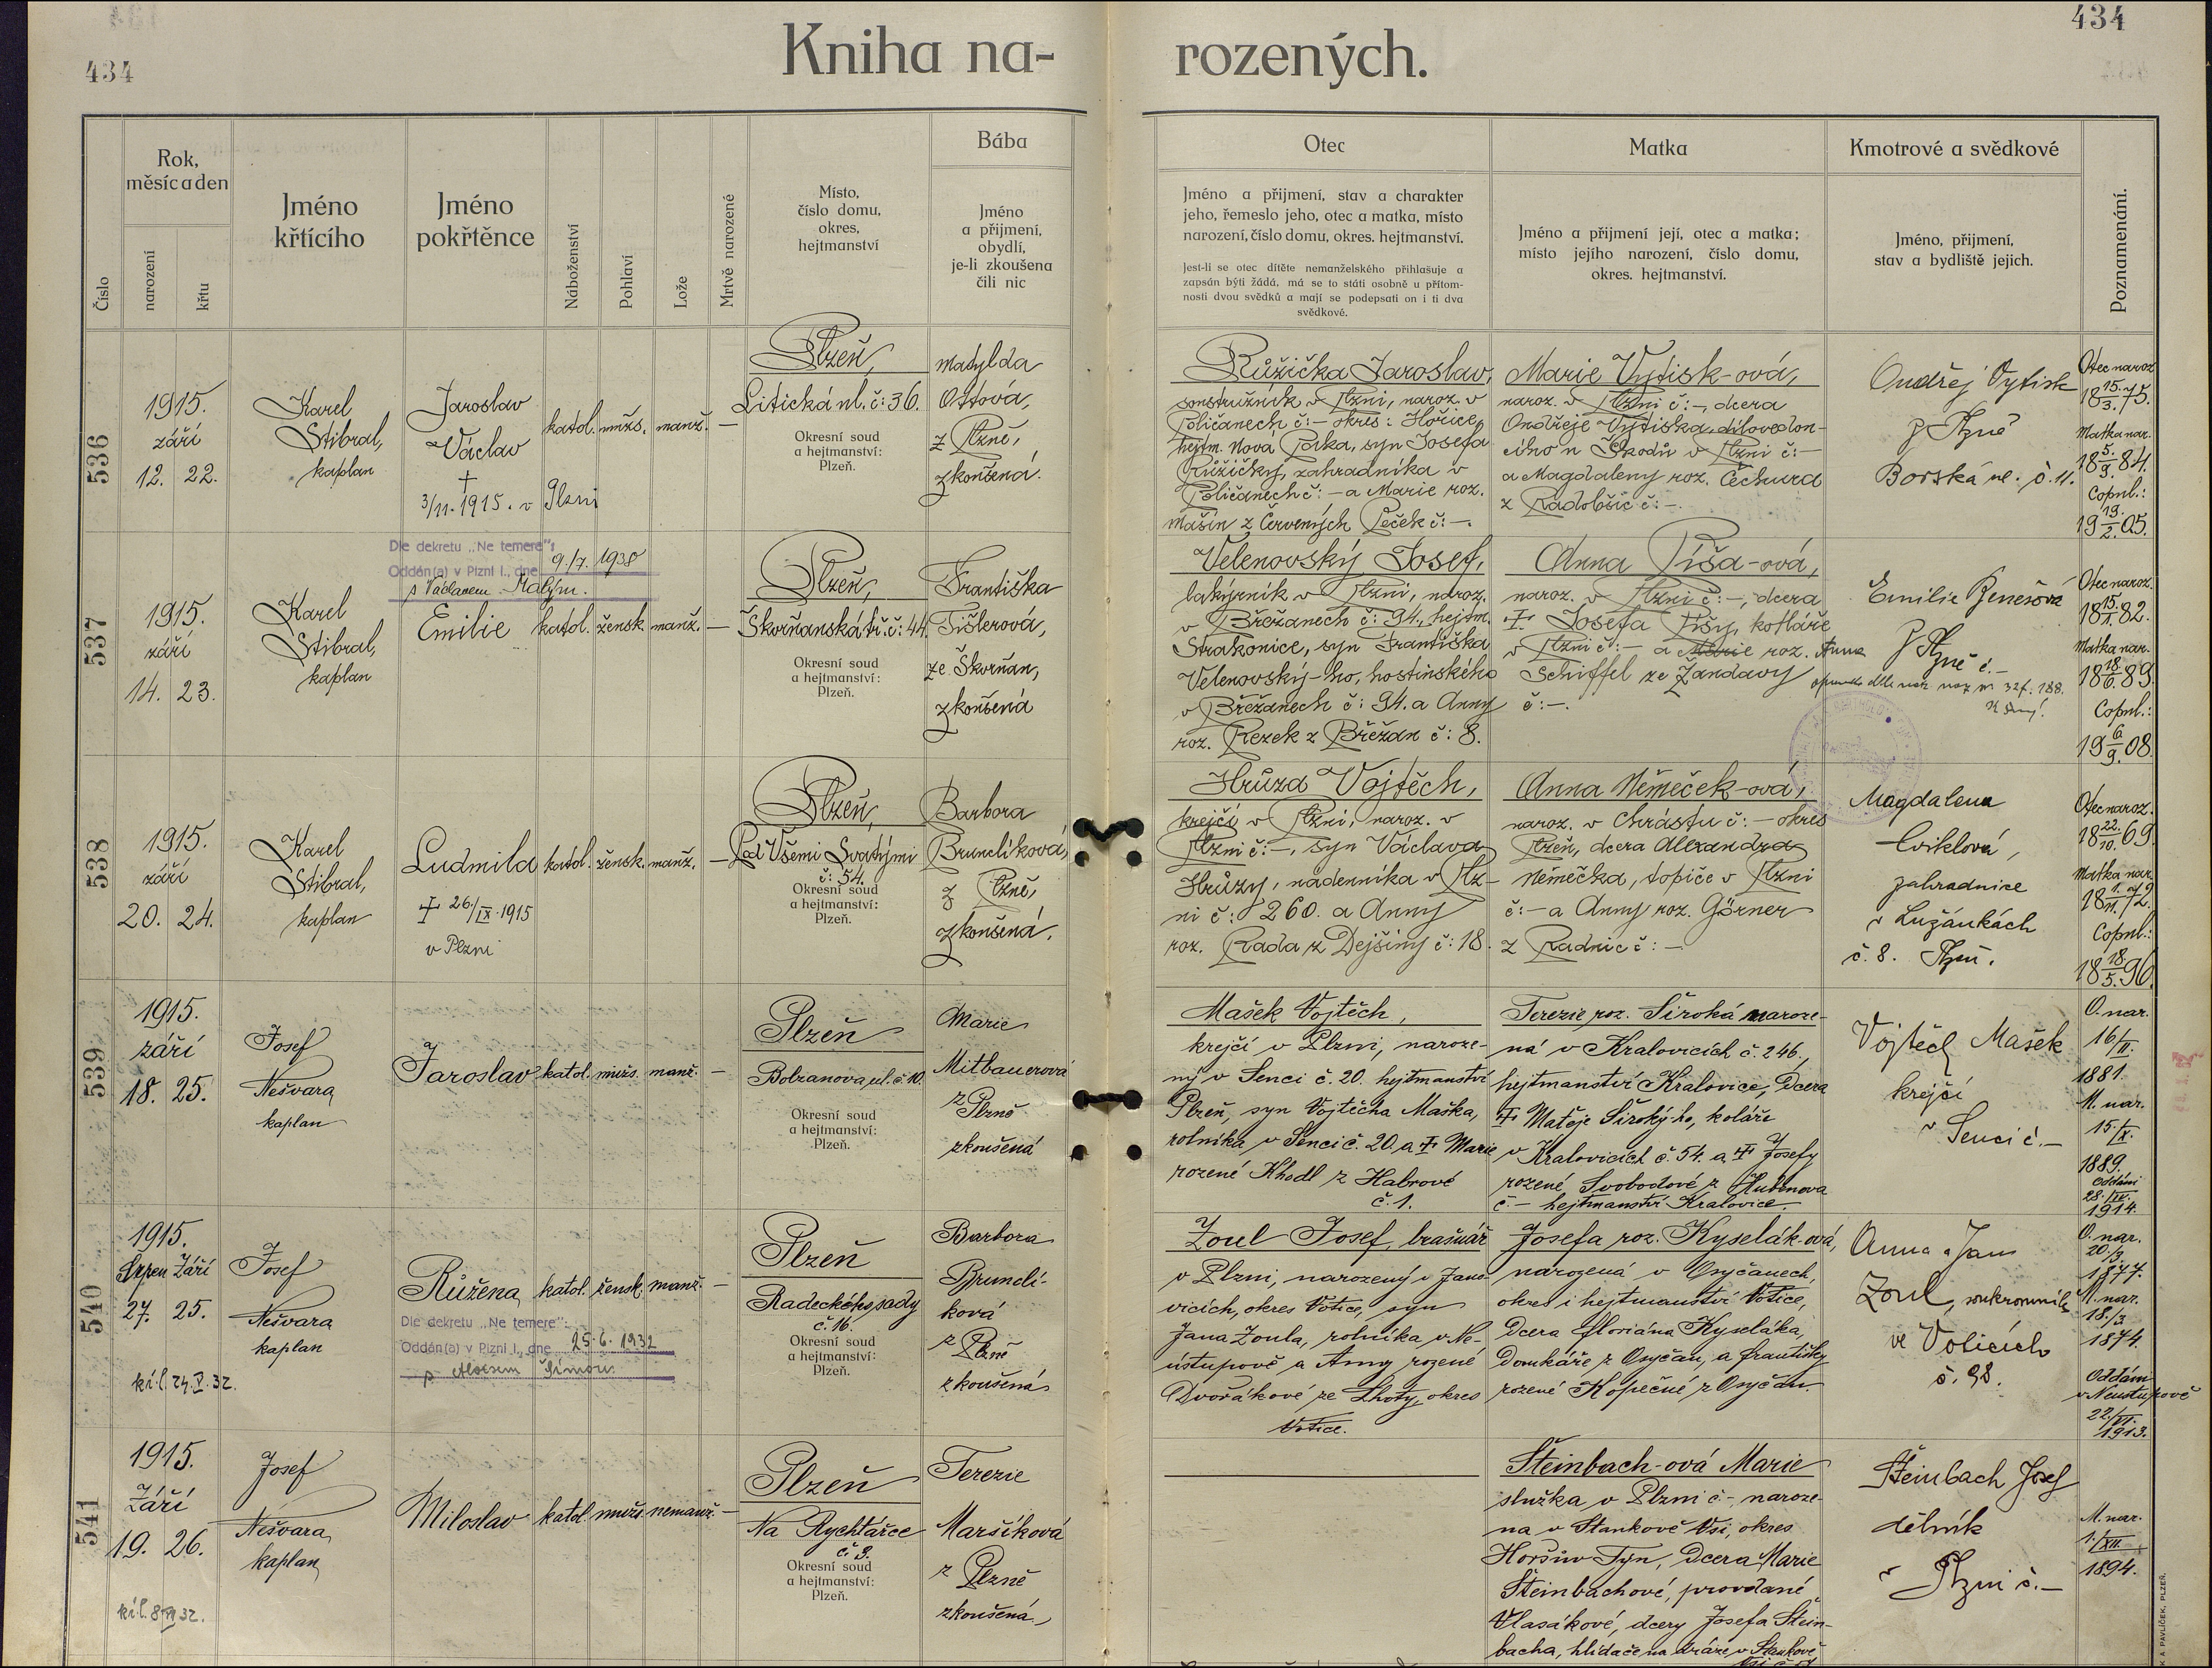 434
434
Kniha na-
rozených.
Číslo
Rok,
měsíc a den
narození
křtu
Jméno
křtícího
Jméno
pokřtěnce
Náboženství
Pohlaví
Lože
Mrtvě narozené
Místo,
číslo domu,
okres,
hejtmanství
Bába
Jméno
a přijmení,
obydlí,
je-li zkoušena
čili nic
Otec
Jméno a přijmení, stav a charakter
jeho, řemeslo jeho, otec a matka, místo
narození, číslo domu, okres. hejtmanství.
Jest-li se otec dítěte nemanželského přihlašuje a
zapsán býti žádá, má se to státi osobně u přítom-
nosti dvou svědků a mají se podepsati on i ti dva
svědkové.
Matka
Jméno a přijmení její, otec a matka;
místo jejího narození, číslo domu,
okres. hejtmanství.
Kmotrové a svědkové
Jméno, přijmení,
stav a bydliště jejich.
Poznamenání.
536
1915.
září
12. 22.
Karel
Stibral,
kaplan
Jaroslav
Václav
†
3/11. 1915. v Plzni
katol. mužs. manž. —
Plzeň,
Litická ul. č: 36.
Okresní soud
a hejtmanství:
Plzeň.
Matylda
Ottová,
z Plzně,
zkoušená.
Růžička Jaroslav,
soustružník v Plzni, naroz. v
Poličanech č: — okres: Hořice,
hejtm. Nová Paka, syn Josefa
Růžičky, zahradníka v
Poličanech č: — a Marie roz.
Mašín z Červených Peček č: —.
Marie Vytisk-ová,
naroz. v Plzni č: —, dcera
Ondřeje Vytiska, dílovedou-
cího u Škodů v Plzni č: —
a Magdaleny roz. Čechura
z Radobšic č: —.
Ondřej Vytisk
z Plzně
Borská ul. č. 11.
Otec naroz.
18 15./3. 75.
Matka nar.
18 5./9. 84.
Copul.:
19 19./2. 05.
537
1915.
září
14. 23.
Karel
Stibral,
kaplan
Dle dekretu „Ne temere":
Oddán(a) v Plzni I., dne 9./7. 1938
s Václavem Malým.
Emilie
katol. žensk. manž. —
Plzeň,
Škvrňanská tř. č: 44.
Okresní soud
a hejtmanství:
Plzeň.
Františka
Tišlerová,
ze Škvrňan,
zkoušená
Velenovský Josef,
lakýrník v Plzni, naroz.
v Břežanech č: 94., hejtm.
Strakonice, syn Františka
Velenovský-ho, hostinského
v Břežanech č: 94. a Anny
roz. Rezek z Břežan č: 8.
Anna Píša-ová,
naroz. v Plzni č: —, dcera
† Josefa Píšy, kotláře
v Plzni č: — a Marie roz. Anna
Schiffel ze Žandavy
č: —.
Emilie Benešová
z Plzně č. —
Otec naroz.
18 15./1. 82.
Matka nar.
18 18./6. 89.
Copul.:
19 6./9. 08.
538
1915.
září
20. 24.
Karel
Stibral,
kaplan
Ludmila
† 26./IX. 1915
v Plzni
katol. žensk. manž. —
Plzeň,
Pod Všemi Svatými
č: 54.
Okresní soud
a hejtmanství:
Plzeň.
Barbora
Brunclíková,
z Plzně,
zkoušená.
Hrůza Vojtěch,
krejčí v Plzni, naroz. v
Plzni č: —, syn Václava
Hrůzy, nádenníka v Plz-
ni č: 260. a Anny
roz. Rada z Dejšiny č: 18.
Anna Němeček-ová,
naroz. v Chrástu č: — okres
Plzeň, dcera Alexandra
Němečka, topiče v Plzni
č: — a Anny roz. Görner
z Radnic č: —.
Magdalena
Cviklová,
zahradnice
v Lužánkách
č. 8. Plzeň.
Otec naroz.
18 22./10. 69.
Matka nar.
18 1./11. 72.
Copul.:
18 18./5. 96.
539
1915.
září
18. 25.
Josef
Nešvara
kaplan
Jaroslav
katol. mužs. manž. —
Plzeň
Bolzanova ul. č. 10.
Okresní soud
a hejtmanství:
Plzeň.
Marie
Mitbauerová
z Plzně
zkoušená
Mašek Vojtěch,
krejčí v Plzni, naroze-
ný v Senci č. 20. hejtmanství
Plzeň, syn Vojtěcha Maška,
rolníka v Senci č. 20. a † Marie
rozené Khodl z Habrové
č. 1.
Terezie roz. Široká naroze-
ná v Kralovicích č. 246.,
hejtmanství Kralovice, Dcera
† Matěje Široký-ho, koláře
v Kralovicích č. 54. a † Josefy
rozené Svobodové z Hubenova
č. — hejtmanství Kralovice.
Vojtěch Mašek
krejčí
v Senci č. —
O. nar.
16/II.
1881.
M. nar.
15./X.
1889.
oddáni
28./IX.
1914.
540
1915.
Srpen Září
27. 25.
Josef
Nešvara
kaplan
kř. l. 24. V. 32.
Růžena
Dle dekretu „Ne temere":
Oddán(a) v Plzni I., dne 25. 6. 1932
s Aloisem Šimou.
katol. žensk. manž. —
Plzeň
Radeckého sady
č. 16.
Okresní soud
a hejtmanství:
Plzeň.
Barbora
Brunclí-
ková
z Plzně
zkoušená
Zoul Josef, brašnář
v Plzni, narozený v Jano-
vicích, okres Votice, syn
Jana Zoula, rolníka v Ne-
ústupově a Anny rozené
Dvořákové ze Lhoty, okres
Votice.
Josefa roz. Kyselák-ová,
narozená v Osyčanech,
okres i hejtmanství Votice,
Dcera Floriána Kyseláka,
Domkáře z Osyčan, a Františky
rozené Kopečné z Osyčan.
Anna a Jan
Zoul, soukromník
ve Voticích
č. 98.
O. nar.
20./3.
1877.
M. nar.
18./3.
1874.
oddáni
v Neustupově
22./VI.
1913.
541
1915.
Září
19. 26.
Josef
Nešvara
kaplan
Miloslav
katol. mužs. nemanž. —
Plzeň
Na Rychtářce
č. 3.
Okresní soud
a hejtmanství:
Plzeň.
Terezie
Maršíková
z Plzně
zkoušená
Šteinbach-ová Marie
služka v Plzni č — naroze-
na v Staňkově Vsi, okres
Horšův Týn, Dcera Marie
Šteinbachové, provdané
Vlasákové, dcery Josefa Štein-
bacha, hlídače na dráze v Staňkově
Šteinbach Josef
dělník
v Plzni č. —
M. nar.
1./XII.
1894.
K A PAVLÍČEK, PLZEŇ.